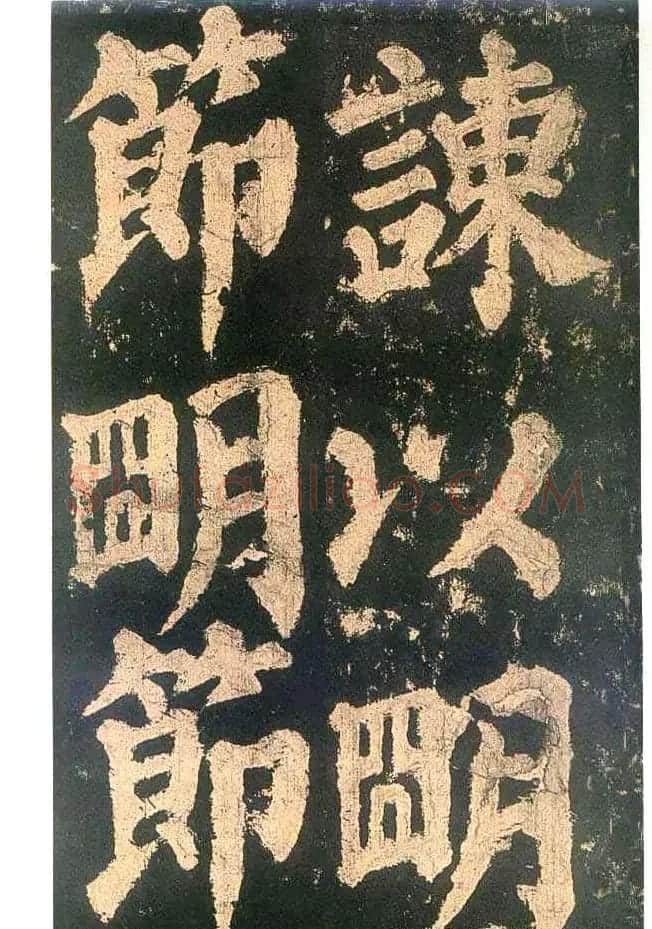 諫以朙
節朙節
ShufaZiliao.COM